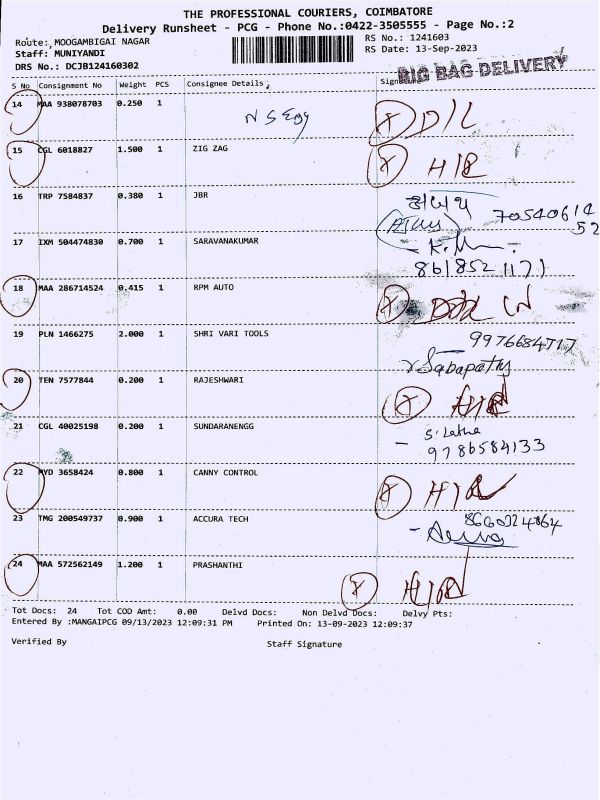 THE PROFESSIONAL COURIERS, COIMBATORE
Delivery Runsheet - PCG - Phone No.:0422-3505555 - Page No.:2
Route: MOOGAMBIGAI NAGAR
RS No.: 1241603
Staff: MUNIYANDI
RS Date: 13-Sep-2023
DRS No.: DCJB124160302
BIG BAG DELIVERY
S No Consignment No Weight PCS Consignee Details Signature
14 MAA 938078703 0.250 1 N S Engg D/L
15 CGL 6018827 1.500 1 ZIG ZAG
16 TRP 7584837 0.380 1 JBR
7054061452
17 IXM 504474830 0.700 1 SARAVANAKUMAR
8618521171
18 MAA 286714524 0.415 1 RPM AUTO
19 PLN 1466275 2.000 1 SHRI VARI TOOLS
9976684717
Sabapathy
20 TEN 7577844 0.200 1 RAJESHWARI
21 CGL 40025198 0.200 1 SUNDARANENGG
S. Latha
9786584133
22 MYD 3658424 0.800 1 CANNY CONTROL
23 TMG 200549737 0.900 1 ACCURA TECH
24 MAA 572562149 1.200 1 PRASHANTHI
Tot Docs: 24 Tot COD Amt: 0.00 Delvd Docs: Non Delvd Docs: Delvy Pts:
Entered By :MANGAIPCG 09/13/2023 12:09:31 PM Printed On: 13-09-2023 12:09:37
Verified By Staff Signature